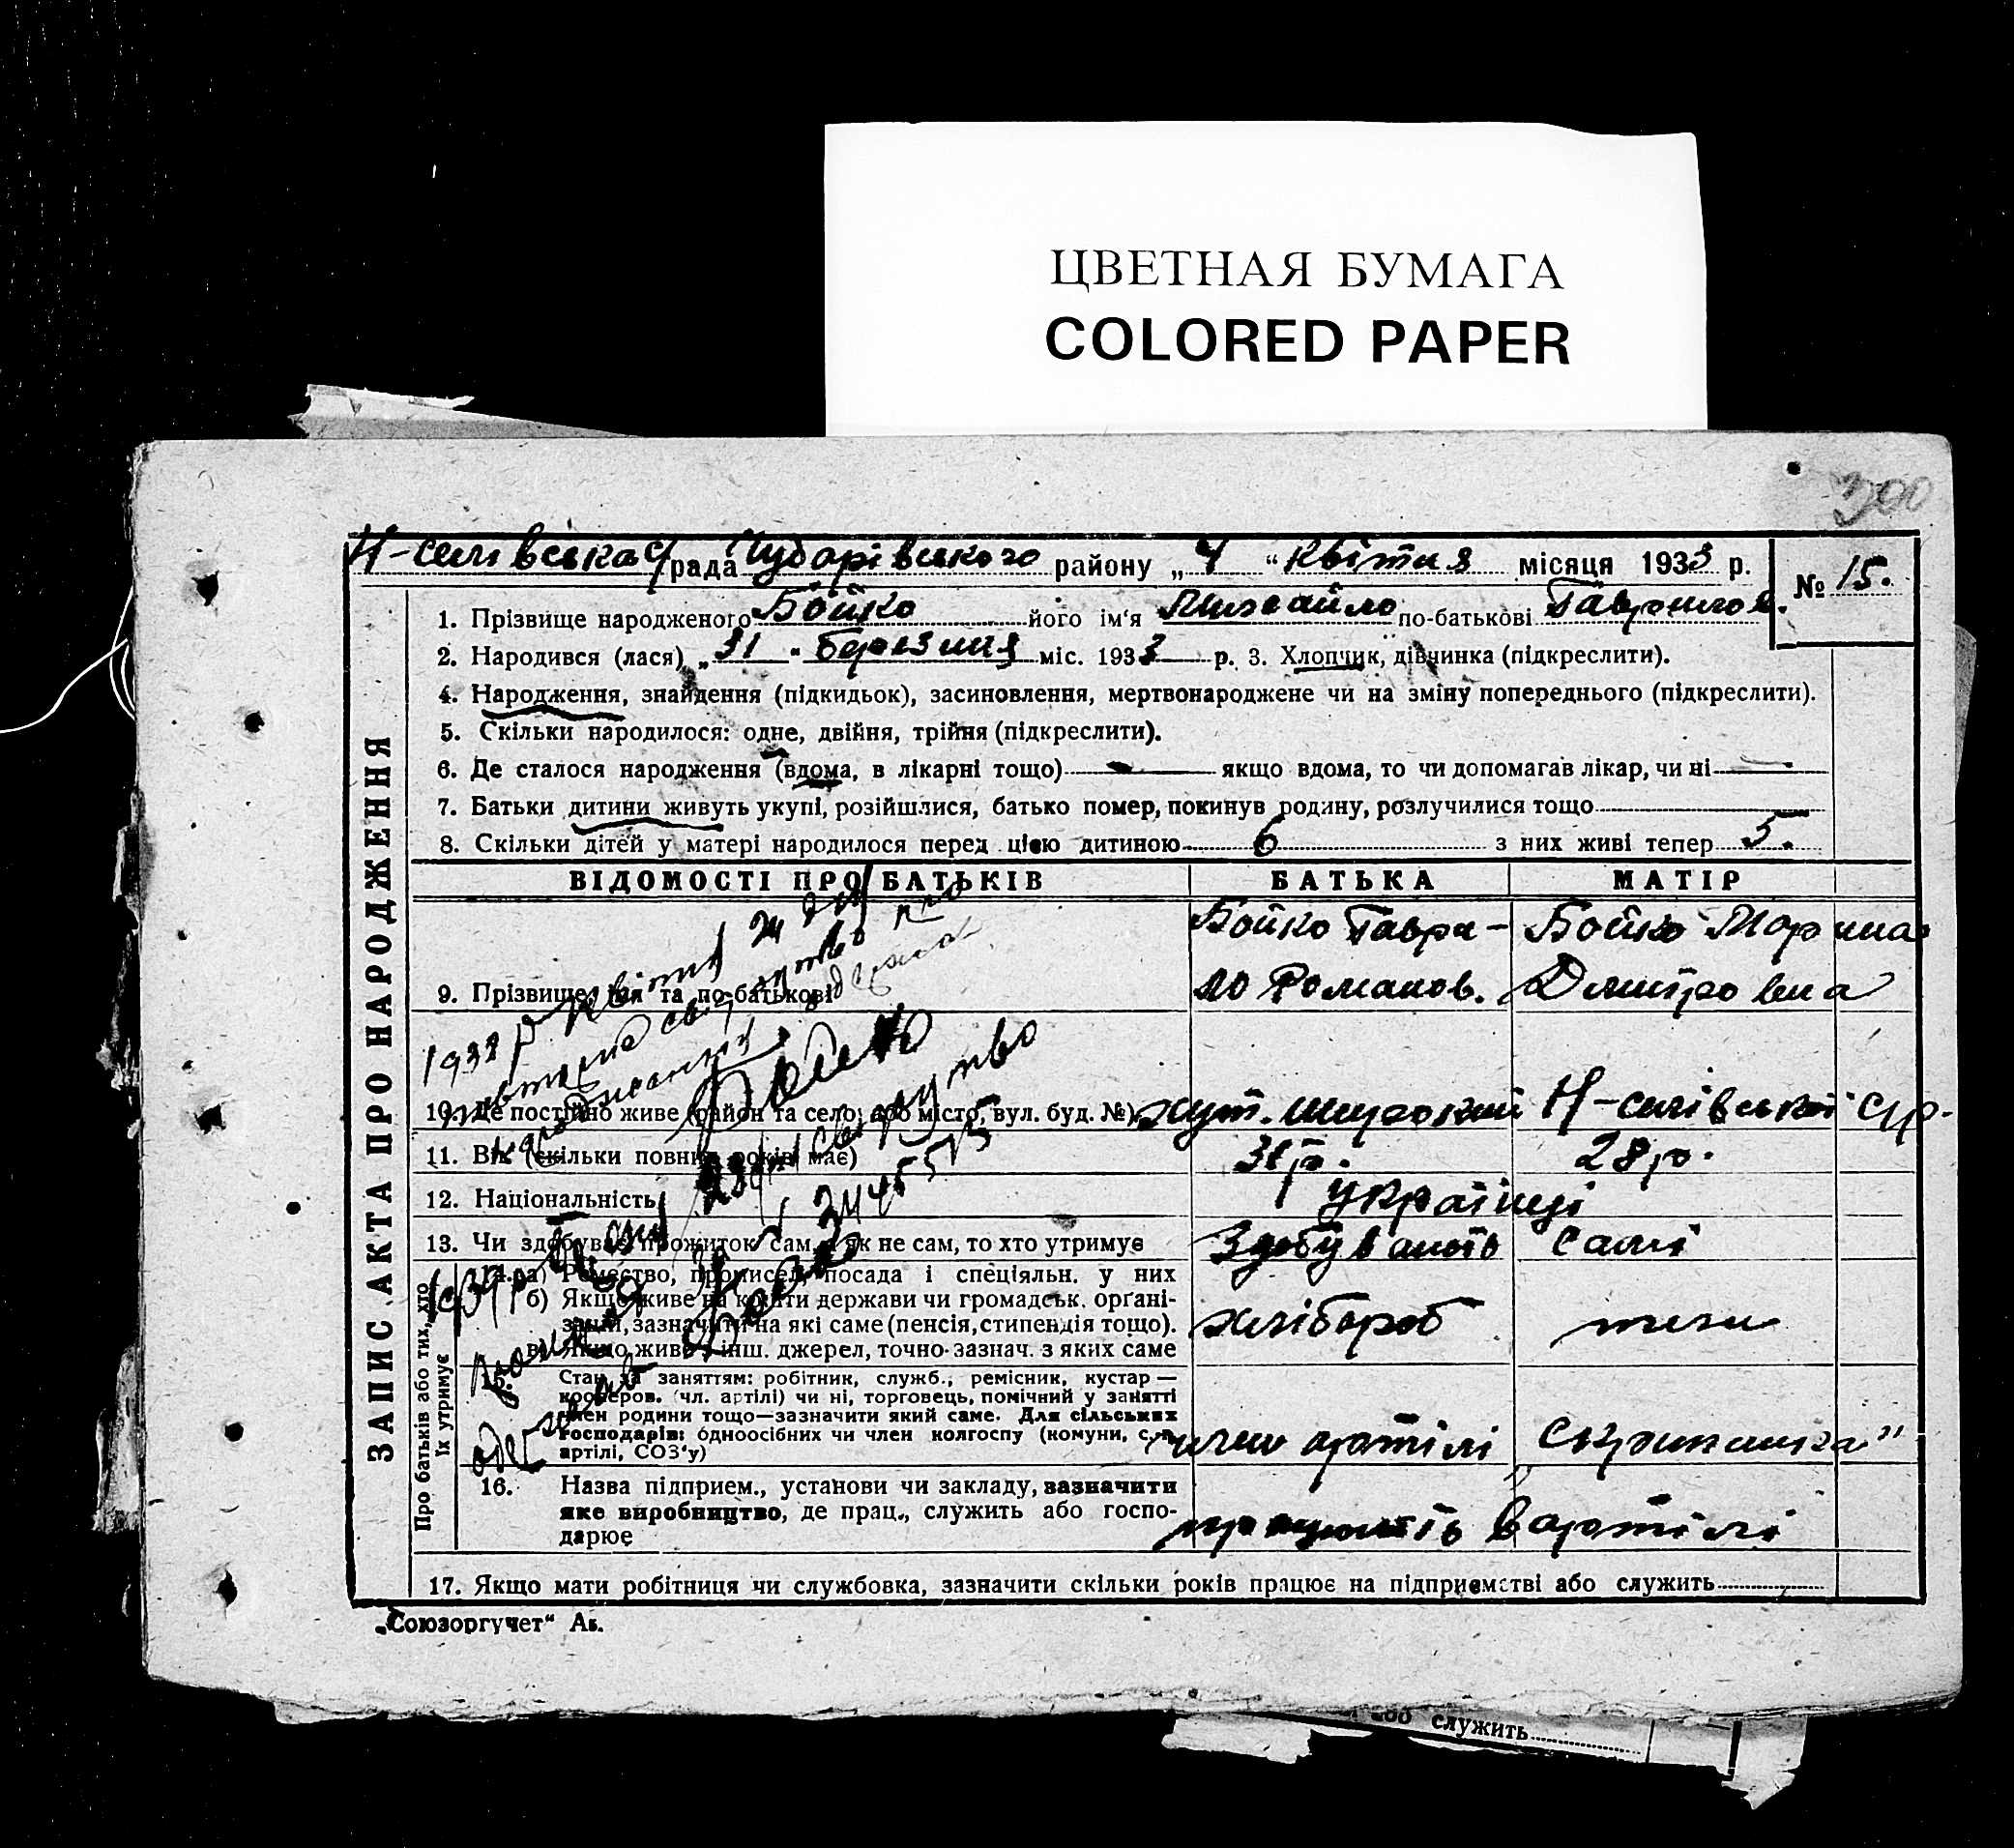 ЦВЕТНАЯ БУМАГА
COLORED PAPER
300
Н-селівська с/рада Чубарівського району „4“ Квітня місяця 1933 р. № 15.
ЗАПИС АКТА ПРО НАРОДЖЕННЯ
1. Прізвище народженого Бойко його ім‘я Михайло по-батькові Гаврилов.
2. Народився (лася) „31“ березния міс. 1933 р. 3. Хлопчик, дівчинка (підкреслити).
4. Народження, знайдення (підкидьок), засиновлення, мертвонароджене чи на зміну попереднього (підкреслити).
5. Скільки народилося: одне, двійня, трійня (підкреслити).
6. Де сталося народження (вдома, в лікарні тощо) — якщо вдома, то чи допомагав лікар, чи ні —
7. Батьки дитини живуть укупі, розійшлися, батько помер, покинув родину, розлучилися тощо
8. Скільки дітей у матері народилося перед цією дитиною 6 з них живі тепер 5.
ВІДОМОСТІ ПРО БАТЬКІВ БАТЬКА МАТІР
Бойко Гаври- Бойко Марина
9. Прізвище, ім‘я та по-батькові ло Романов. Дмитровна
10. Де постійно живе (район та село, або місто, вул. буд. №) хут. Широкий Н-селівської с/р.
11. Вік (скільки повних років має) 31р. 28р.
12. Національність українці
13. Чи здобуває прожиток сам, а як не сам, то хто утримує Здобувають самі
Про батьків або тих, хто їх утримує
14. а) Ремество, промисел, посада і спеціяльн. у них
б) Якщо живе на кошти держави чи громадськ. органі-
зацій, зазначити на які саме (пенсія, стипендія тощо). хлібороб
в) Якщо живе з інш. джерел, точно зазнач. з яких саме
15. Стан за заняттям: робітник, служб., ремісник, кустар —
кооперов. (чл. артілі) чи ні, торговець, помічний у занятті
член родини тощо—зазначити який саме. Для сільських
господарів: одноосібних чи член колгоспу (комуни, с.-г. член артілі
артілі, СОЗ‘у)
16. Назва підприєм., установи чи закладу, зазначити
яке виробництво, де прац., служить або госпо- працюють в артілі
дарює
17. Якщо мати робітниця чи службовка, зазначити скільки років працює на підприємстві або служить
„Союзоргучет“ Ак.
або служить